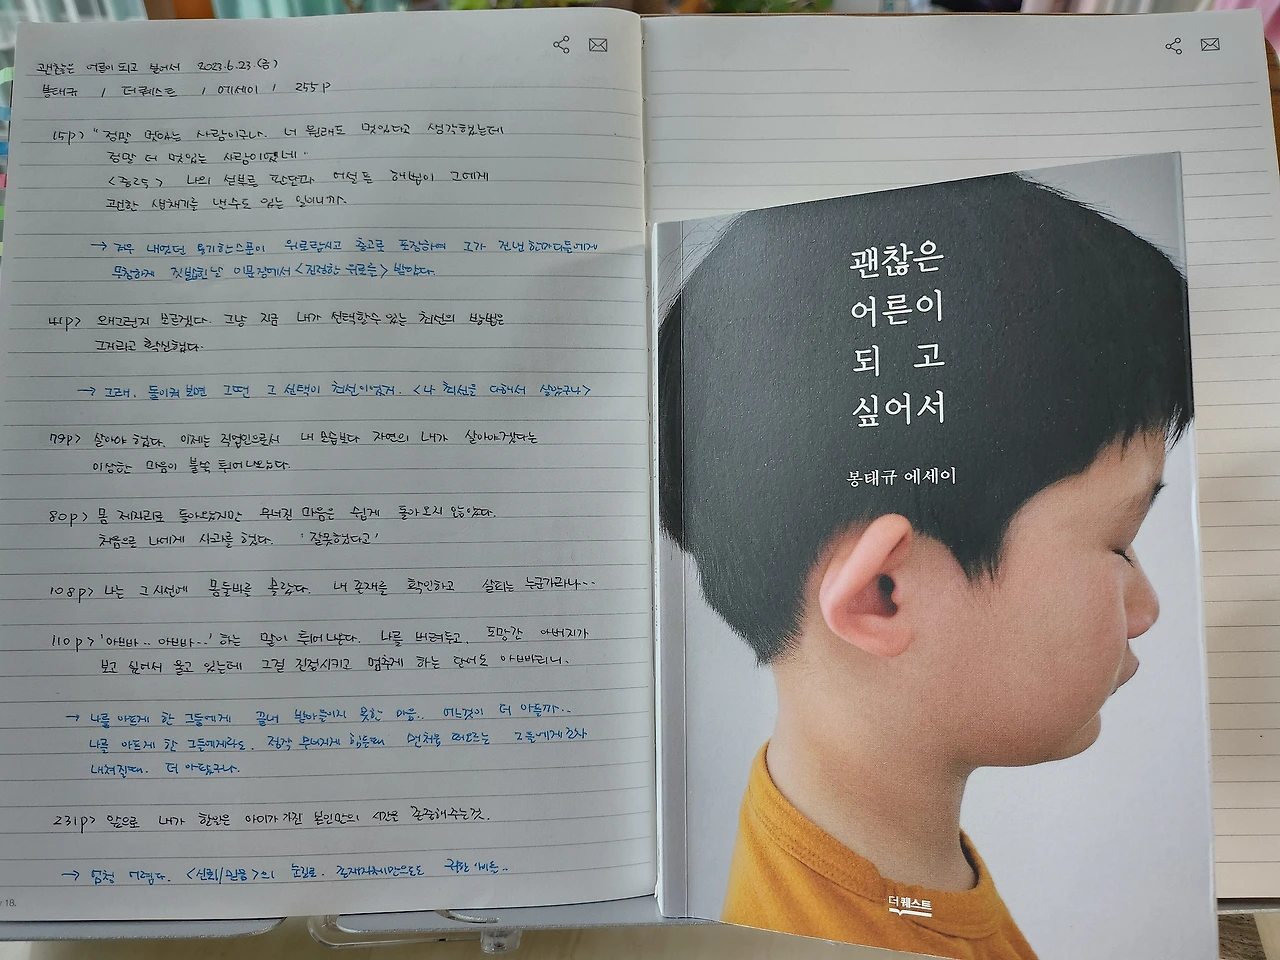 괜찮은 어른이 되고 싶어서 2023.6.23 (금)
봉태규 / 더퀘스트 / 에세이 / 255p
15p> "정말 멋있는 사람이구나. 너 원래도 멋있다고 생각했는데
정말 더 멋있는 사람이었네"
<중략> 나의 섣부른 판단과 어설픈 해법이 그에게
괜한 생채기를 낸수도 있는 일이니까.
→ 겨우 내었던 용기한스푼이 위로랍시고 충고로 포장하여 그가 건넨 한마디들에게
무참하게 짓밟힌날 이문장에서 <진정한 위로를> 받았다.
41p> 왜그런지 모르겠다. 그냥 지금 내가 선택할수 있는 최선의 방법은
그거라고 확신했다.
→ 그래. 돌이켜보면 그땐 그 선택이 최선이었겠지. <나 최선을 다해서 살았구나>
79p> 살아야 했다. 이제는 직업인으로서 내 모습보다 자연의 내가 살아야겠다는
이상한 마음이 불쑥 튀어나왔다.
80p> 몸 제자리로 돌아왔지만 무너진 마음은 쉽게 돌아오지 않았다.
처음으로 나에게 사과를 했다. '잘못했다고'
108p> 나는 그시선에 몸둘바를 몰랐다. 내 존재를 확인하고 살피는 누군가라니..
110p> '아빠바.. 아빠바..' 하는 말이 튀어나왔다. 나를 버려두고, 도망간 아버지가
보고 싶어서 울고 있는데 그걸 진정시키고 멈추게 하는 단어도 아빠라니.
→ 나를 아프게 한 그들에게 끝내 받아들이지 못한 마음.. 어느것이 더 아플까..
나를 아프게 한 그들에게라도. 정작 무너지게 힘들때 먼저 떠오르는 그들에게 또다시
내쳐질때. 더 아팠구나.
231p> 앞으로 내가 할일은 아이가 가진 본인만의 시간을 존중해주는것.
→ 엄청 어렵다. <신뢰/믿음>의 눈길로. 존재자체만으로도 귀한
괜찮은
어른이
되 고
싶어서
봉태규 에세이
더퀘스트
18.